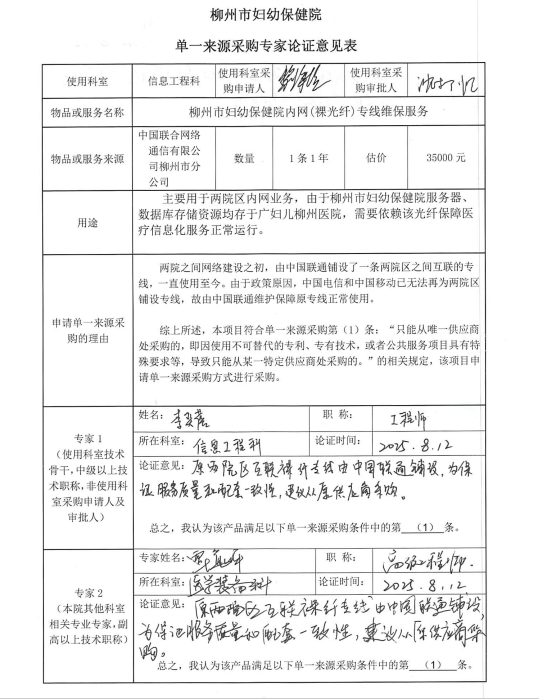 柳州市妇幼保健院
单一来源采购专家论证意见表
使用科室 信息工程科 使用科室采购申请人 使用科室采购审批人
物品或服务名称 柳州市妇幼保健院内网(裸光纤)专线维保服务
物品或服务来源 中国联合网络通信有限公司柳州市分公司 数量 1条1年 估价 35000元
用途
主要用于两院区内网业务，由于柳州市妇幼保健院服务器、
数据库存储资源均存于广妇儿柳州医院，需要依赖该光纤保障医
疗信息化服务正常运行。
申请单一来源采购的理由
两院之间网络建设之初，由中国联通铺设了一条两院区之间互联的专
线，一直使用至今。由于政策原因，中国电信和中国移动已无法再为两院区
铺设专线，故由中国联通维护保障原专线正常使用。
综上所述，本项目符合单一来源采购第（1）条：“只能从唯一供应商
处采购的，即因使用不可替代的专利、专有技术，或者公共服务项目具有特
殊要求等，导致只能从某一特定供应商处采购的。”的相关规定，该项目申
请单一来源采购方式进行采购。
专家1
（使用科室技术
骨干，中级以上技
术职称，非使用科
室采购申请人及
审批人）
姓名： 职 称： 工程师
所在科室： 信息工程科 论证时间： 2025.8.12
论证意见： 原两院区互联裸纤专线由中国联通铺设，为保
证服务质量和配套一致性，建议从原供应商采购。
总之，我认为该产品满足以下单一来源采购条件中的第 （1） 条。
专家2
（本院其他科室
相关专业专家，副
高以上技术职称）
专家姓名： 职 称： 高级工程师
所在科室： 医学装备科 论证时间： 2025.8.12
论证意见： 原两院区互联裸纤专线由中国联通铺设，
为保证服务质量和配套一致性，建议从原供应商采
购。
总之，我认为该产品满足以下单一来源采购条件中的第 （1） 条。